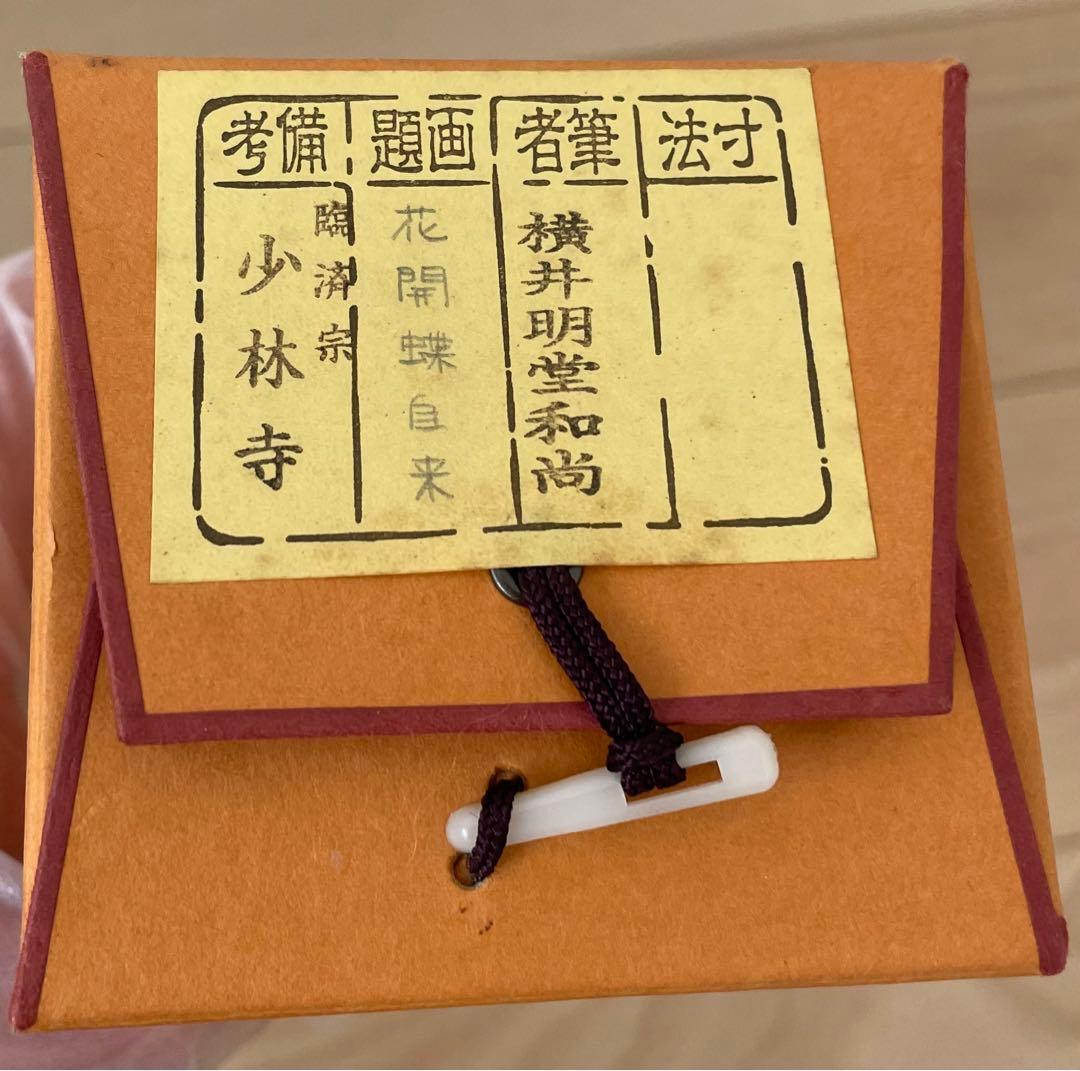 寸法
筆者
横井明堂和尚
画題
花開蝶自来
備考
臨済宗
少林寺